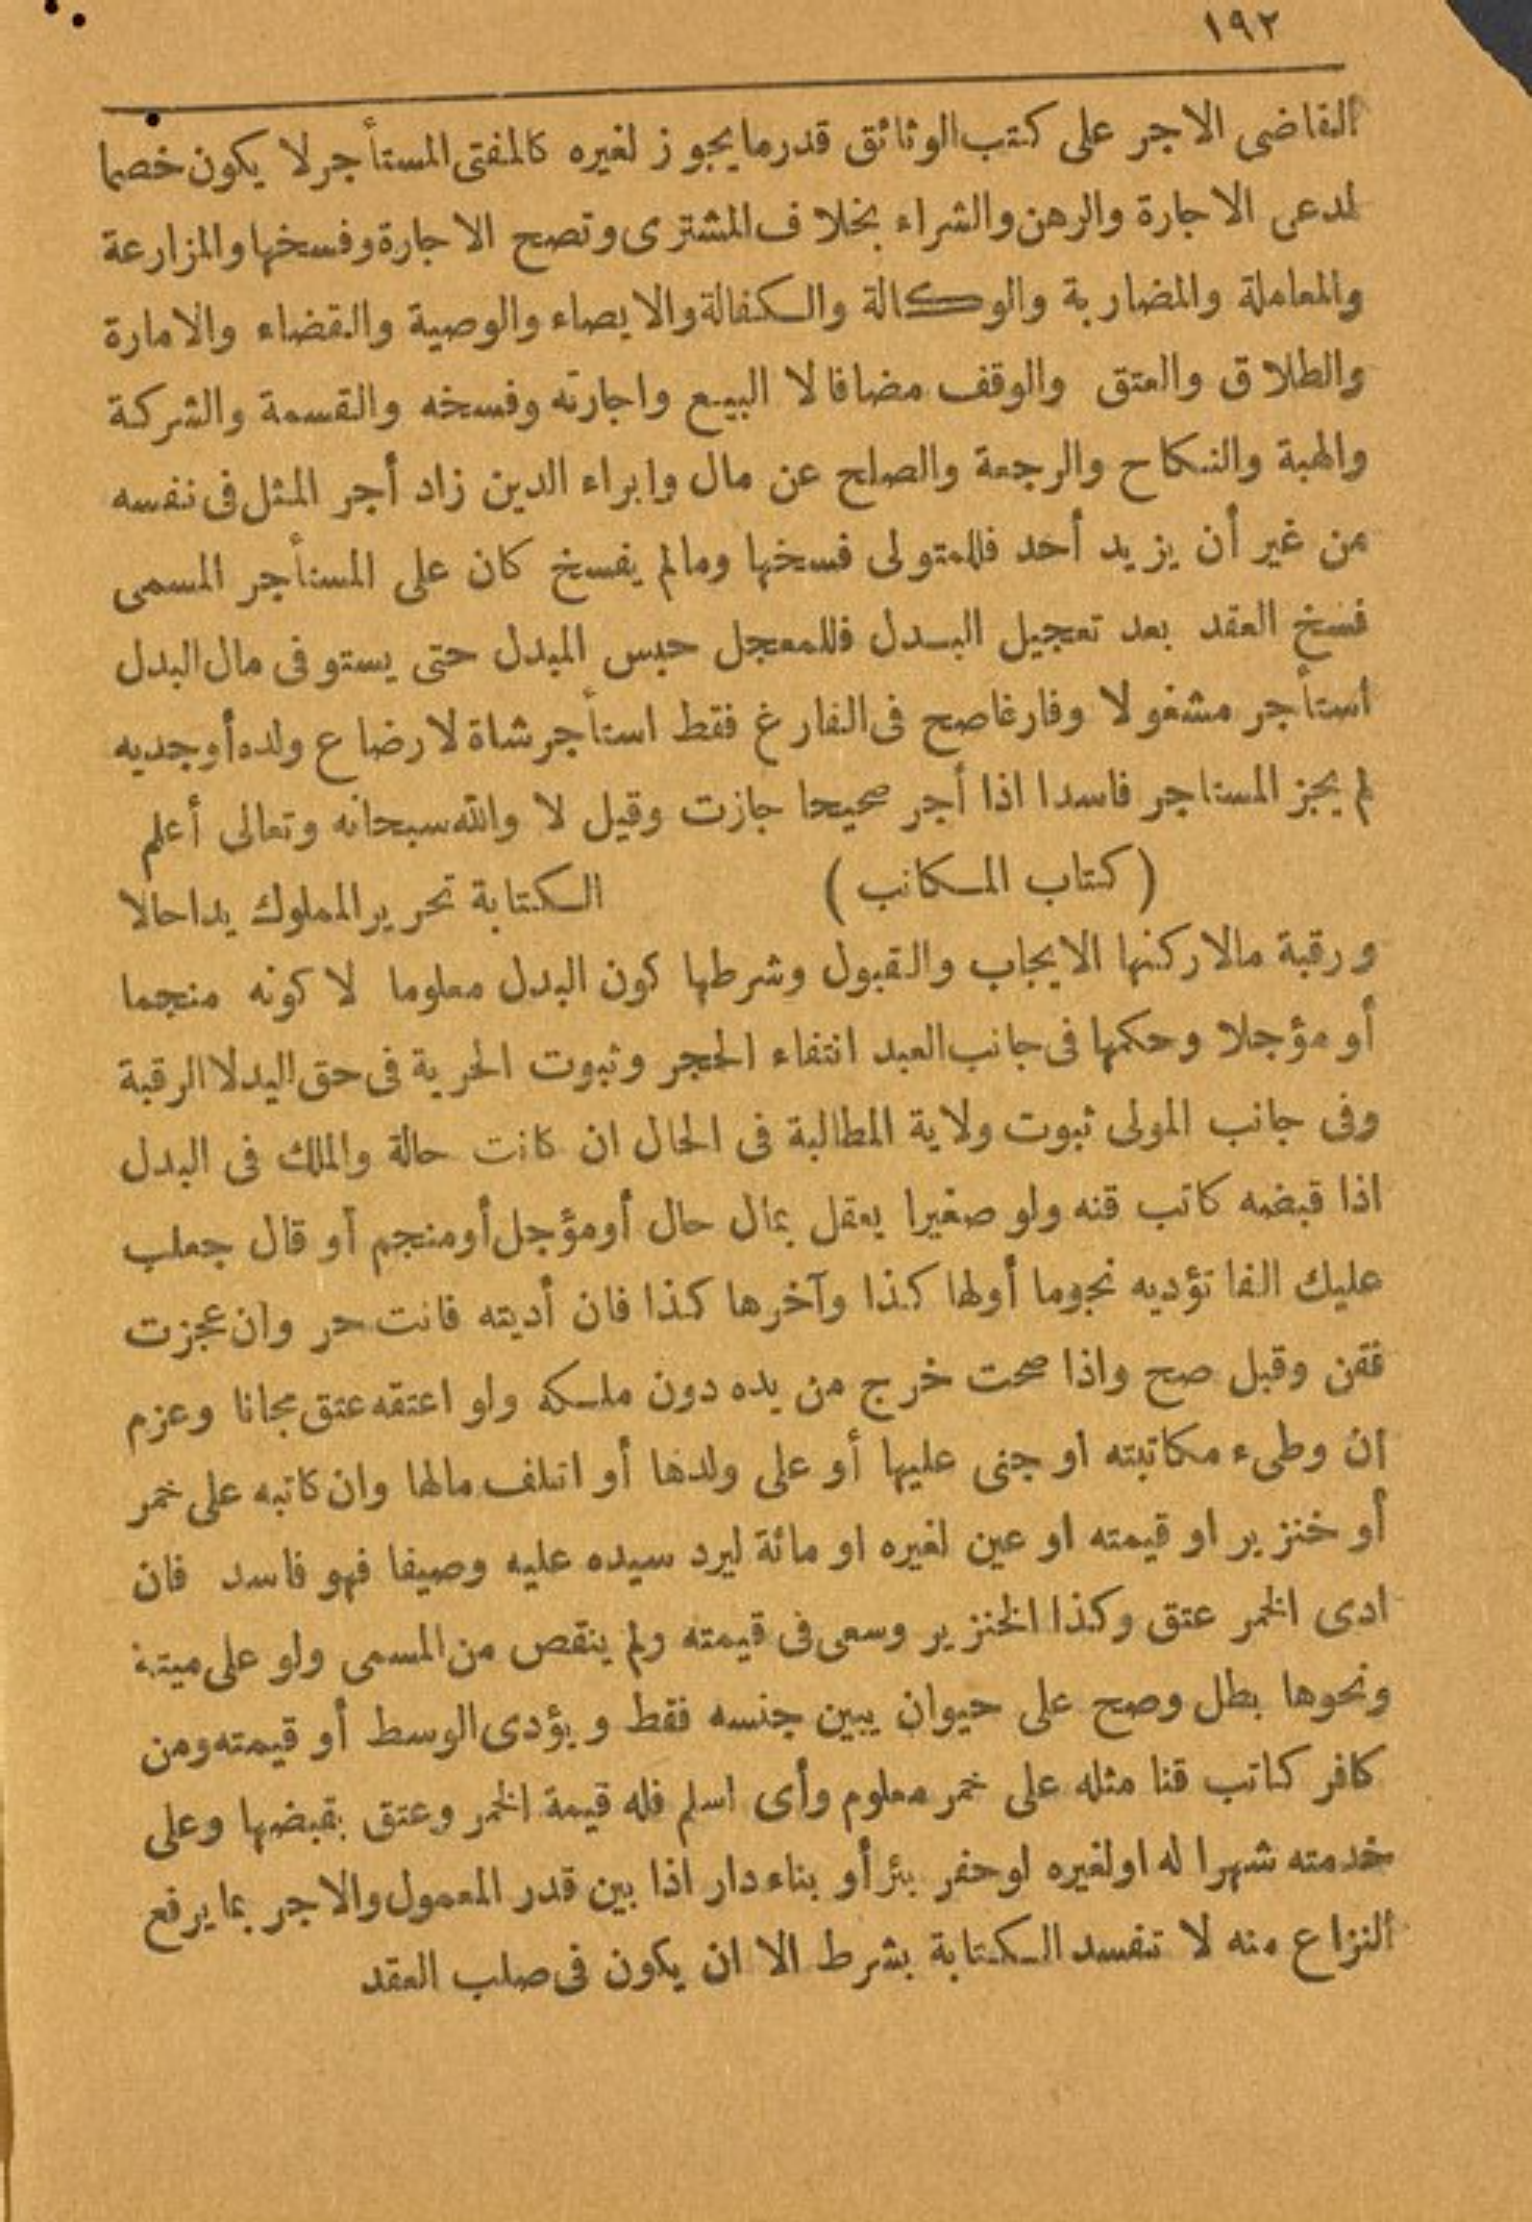 ١٩٢
القاضى الاجر على كتب الوثائق قدر ما يجوز لغيره كالمفتى المستأجر لا يكون خصما
لمدعى الاجارة والرهن والشراء بخلاف المشترى وتصح الاجارة وفسخها والمزارعة
والمعاملة والمضاربة والوكالة والكفالة والايصاء والوصية والقضاء والامارة
والطلاق والعتق والوقف مضافا لا البيع واجارته وفسخه والقسمة والشركة
والهبة والنكاح والرجعة والصلح عن مال وابراء الدين زاد أجر المثل فى نفسه
من غير أن يزيد أحد فللمتولى فسخها ومالم يفسخ كان على المستأجر المسمى
فسخ العقد بعد تعجيل البدل فللمعجل حبس المبدل حتى يستوفى مال البدل
استأجر مشغولا وفارغا صح فى الفارغ فقط استأجر شاة لارضاع ولده أو جديه
لم يجز المستاجر فاسدا اذا أجر صحيحا جازت وقيل لا والله سبحانه وتعالى أعلم
(كتاب المكاتب) الكتابة تحرير المملوك يدا حالا
ورقبة مالا ركنها الايجاب والقبول وشرطها كون البدل معلوما لا كونه منجما
أو مؤجلا وحكمها فى جانب العبد انتفاء الحجر وثبوت الحرية فى حق اليد لا الرقبة
وفى جانب المولى ثبوت ولاية المطالبة فى الحال ان كانت حالة والملك فى البدل
اذا قبضه كاتب قنه ولو صغيرا يعقل بمال حال أو مؤجل أو منجم أو قال جعلب
عليك الفا تؤديه نجوما أولها كذا وآخرها كذا فان أديته فانت حر وان عجزت
فقن وقبل صح واذا صحت خرج من يده دون ملكه ولو اعتقه عتق مجانا وعزم
ان وطىء مكاتبته او جنى عليها أو على ولدها أو اتلف مالها وان كاتبه على خمر
أو خنزير او قيمته او عين لغيره او مائة ليرد سيده عليه وصيفا فهو فاسد فان
ادى الخمر عتق وكذا الخنزير وسعى فى قيمته ولم ينقص من المسمى ولو على ميتة
ونحوها بطل وصح على حيوان يبين جنسه فقط ويؤدى الوسط أو قيمته ومن
كافر كاتب قنا مثله على خمر معلوم وأى اسلم فله قيمة الخمر وعتق بقبضها وعلى
خدمته شهرا له او لغيره او حفر بئر أو بناء دار اذا بين قدر المعمول والاجر بما يرفع
النزاع منه لا تفسد الكتابة بشرط الا ان يكون فى صلب العقد